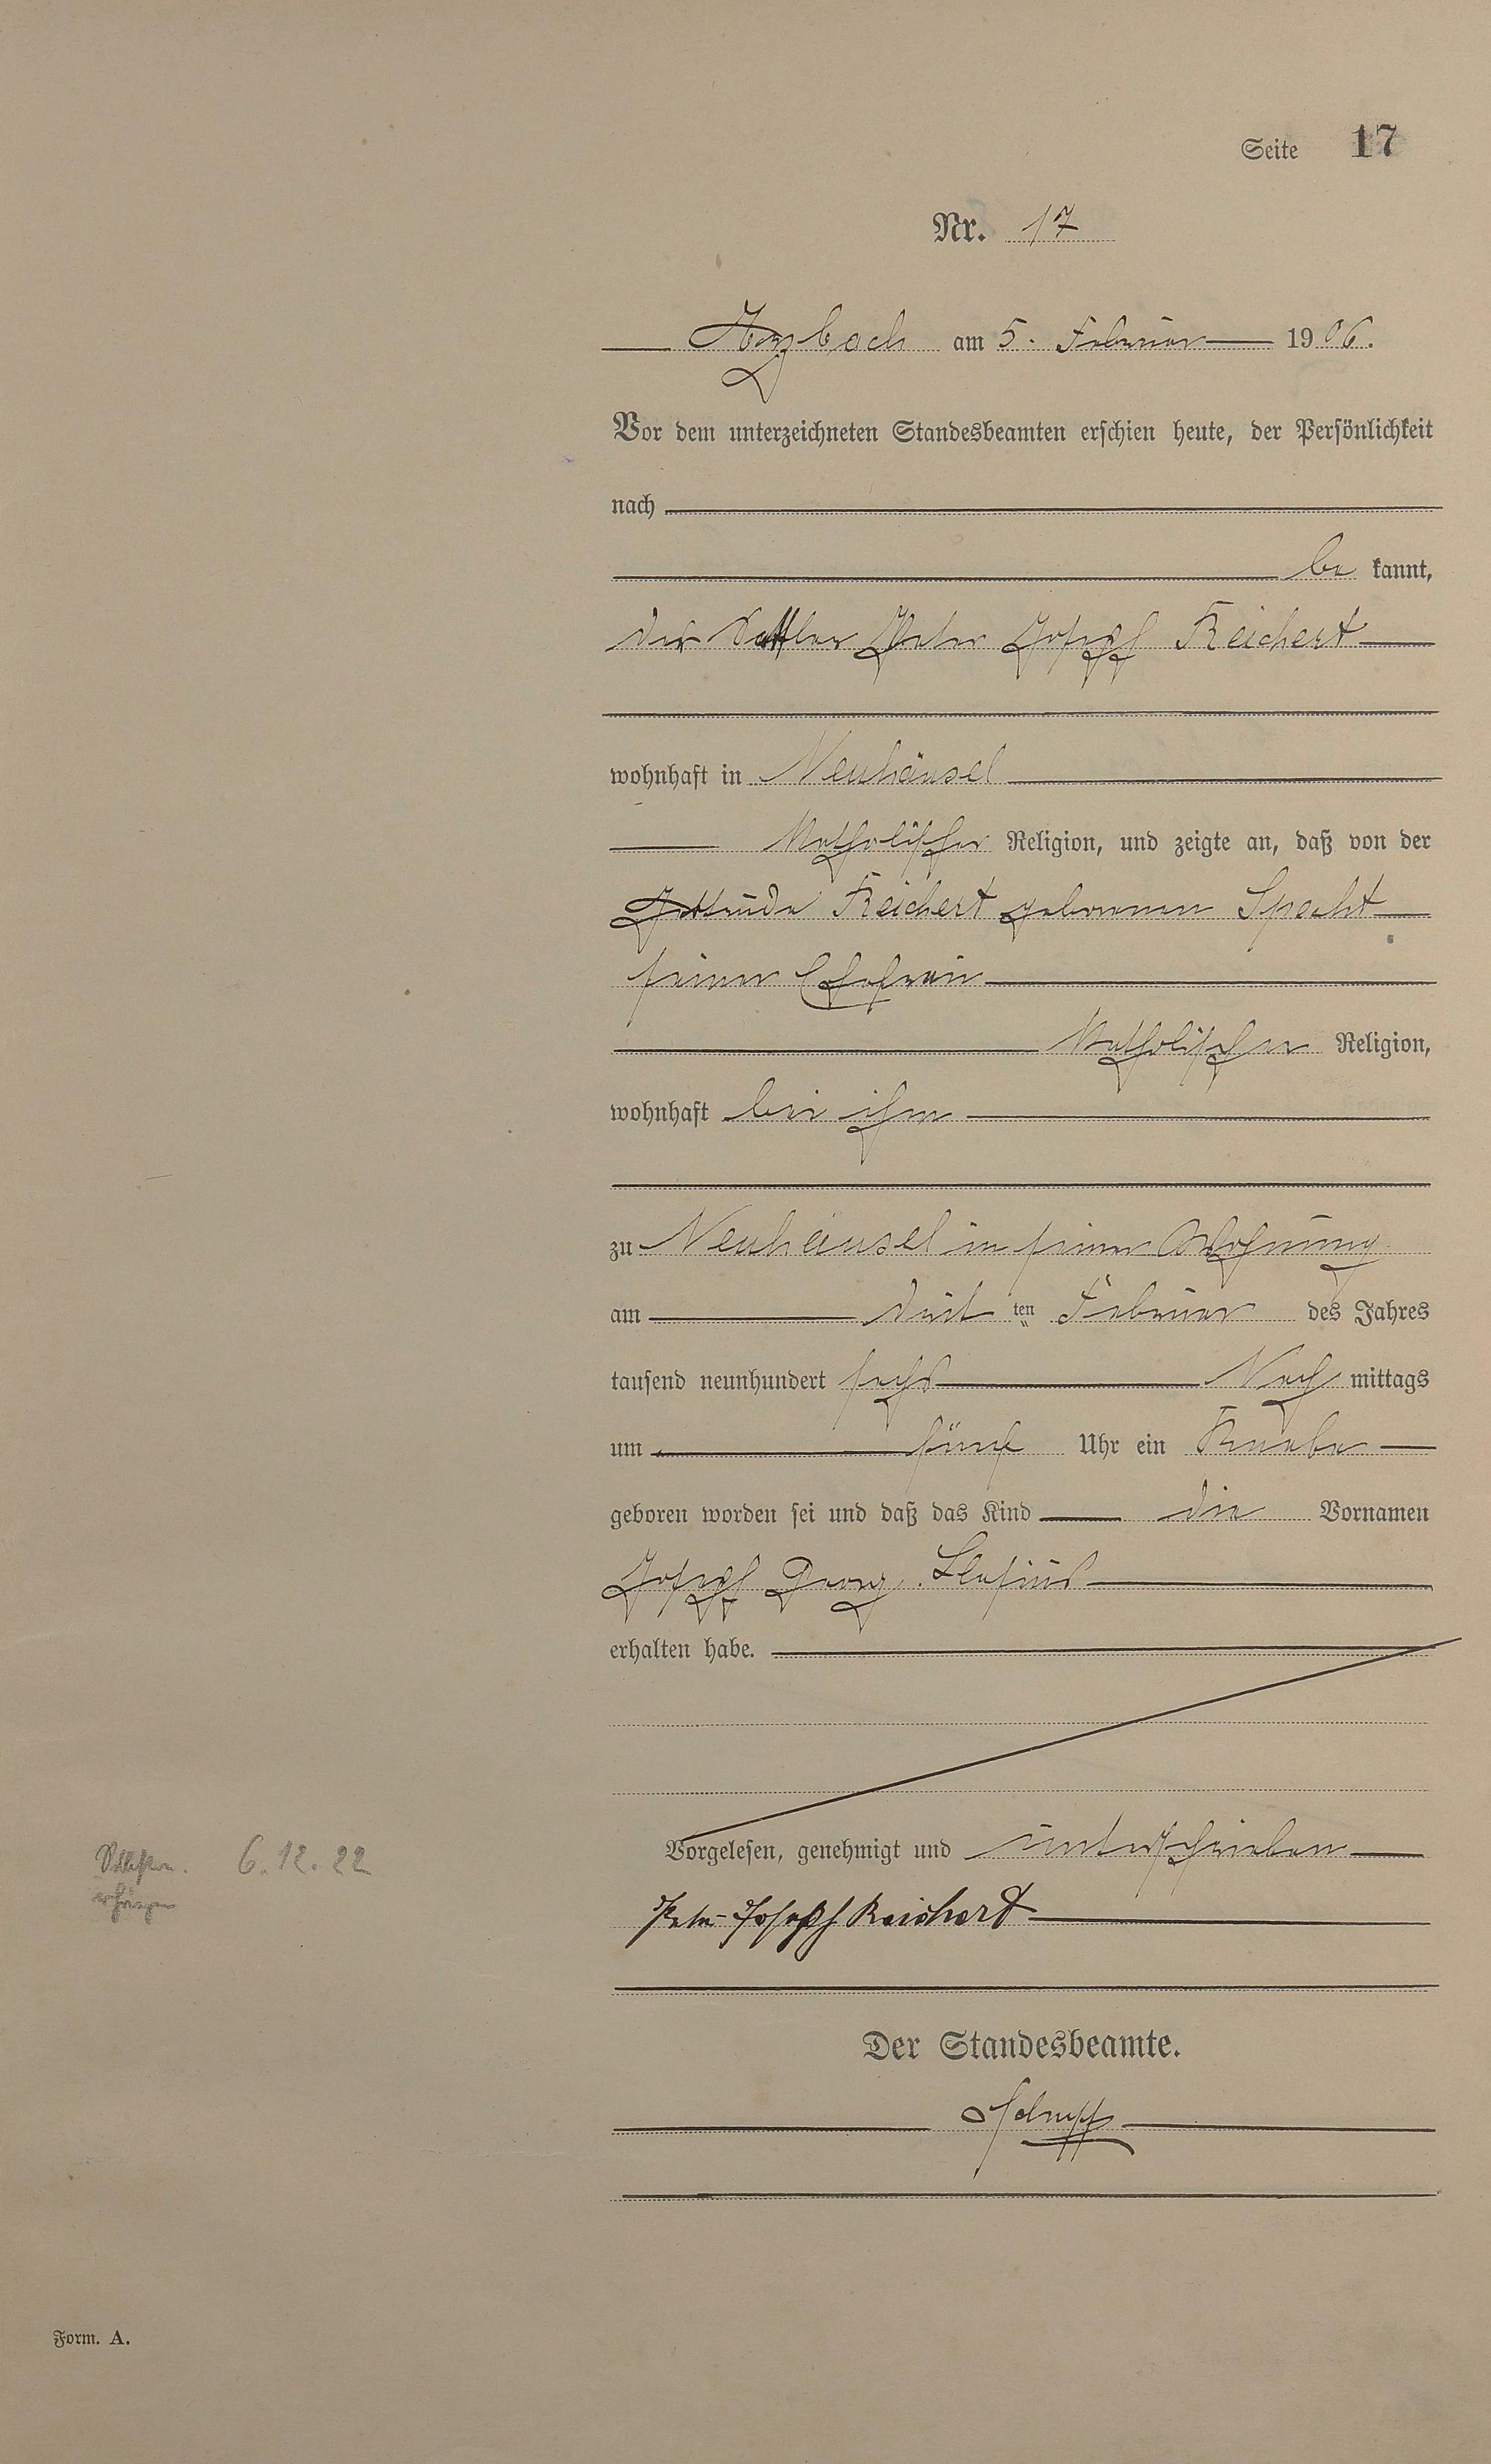 Seite 17
Nr. 17
Arzbach am 5. Februar 1906.
Vor dem unterzeichneten Standesbeamten erschien heute, der Persönlichkeit
nach
be kannt,
der Sattler Peter Joseph Reichert
wohnhaft in Neuhäusel
katholischer Religion, und zeigte an, daß von der
Gertrude Reichert geborenen Specht
seiner Ehefrau
katholischer Religion,
wohnhaft bei ihm
zu Neuhäusel in seiner Wohnung
am dritten Februar des Jahres
tausend neunhundert sechs Nach mittags
um fünf Uhr ein Knabe
geboren worden sei und daß das Kind die Vornamen
Joseph Georg
erhalten habe.
Vorgelesen, genehmigt und unterschrieben
Peter Joseph Reichert
6.12.22
Der Standesbeamte.
Form. A.